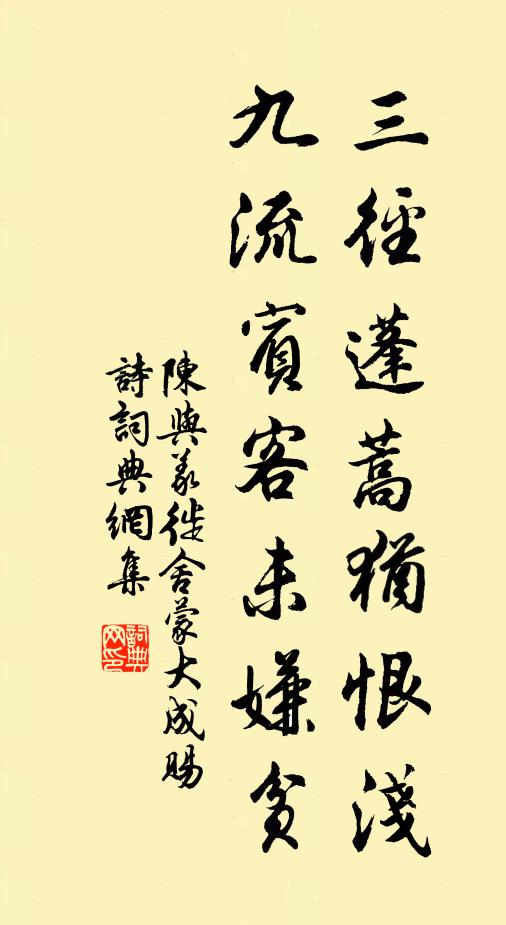 三徑蓬蒿猶恨淺
九流賓客未嫌貧
陳與義徙舍蒙大成賜
詩詞典網集
詞典網印